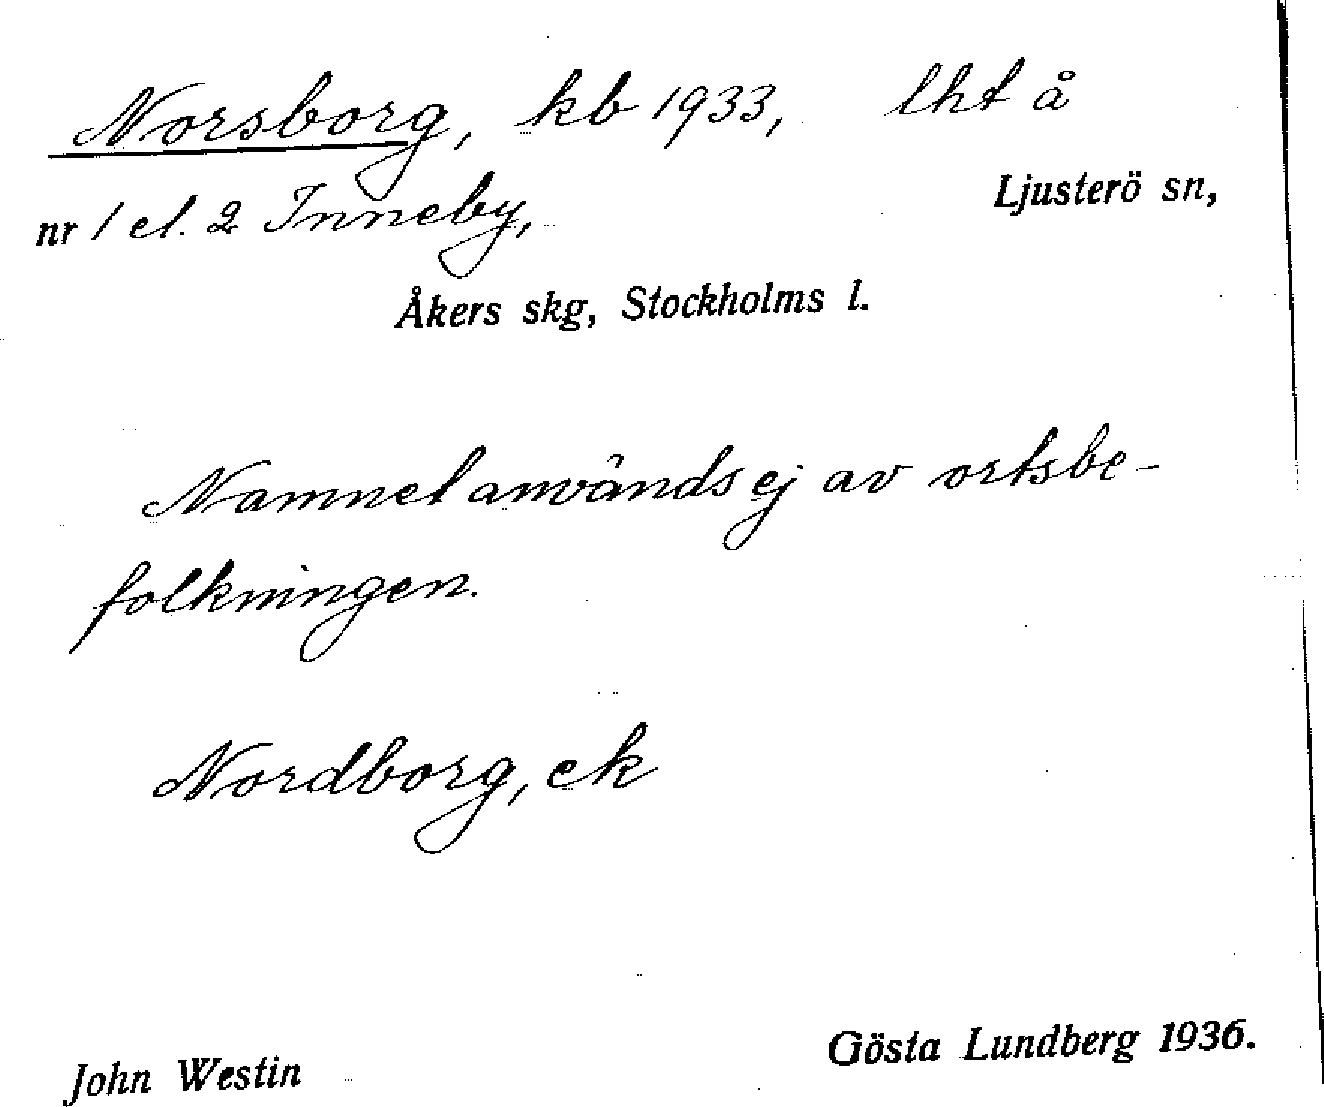 Norsborg, kb 1933, lht å
nr 1 el. 2 Inneby, Ljusterö sn,
Åkers skg, Stockholms l.
Namnet används ej av ortsbe-
folkningen.
Nordborg, ek
John Westin Gösta Lundberg 1936.